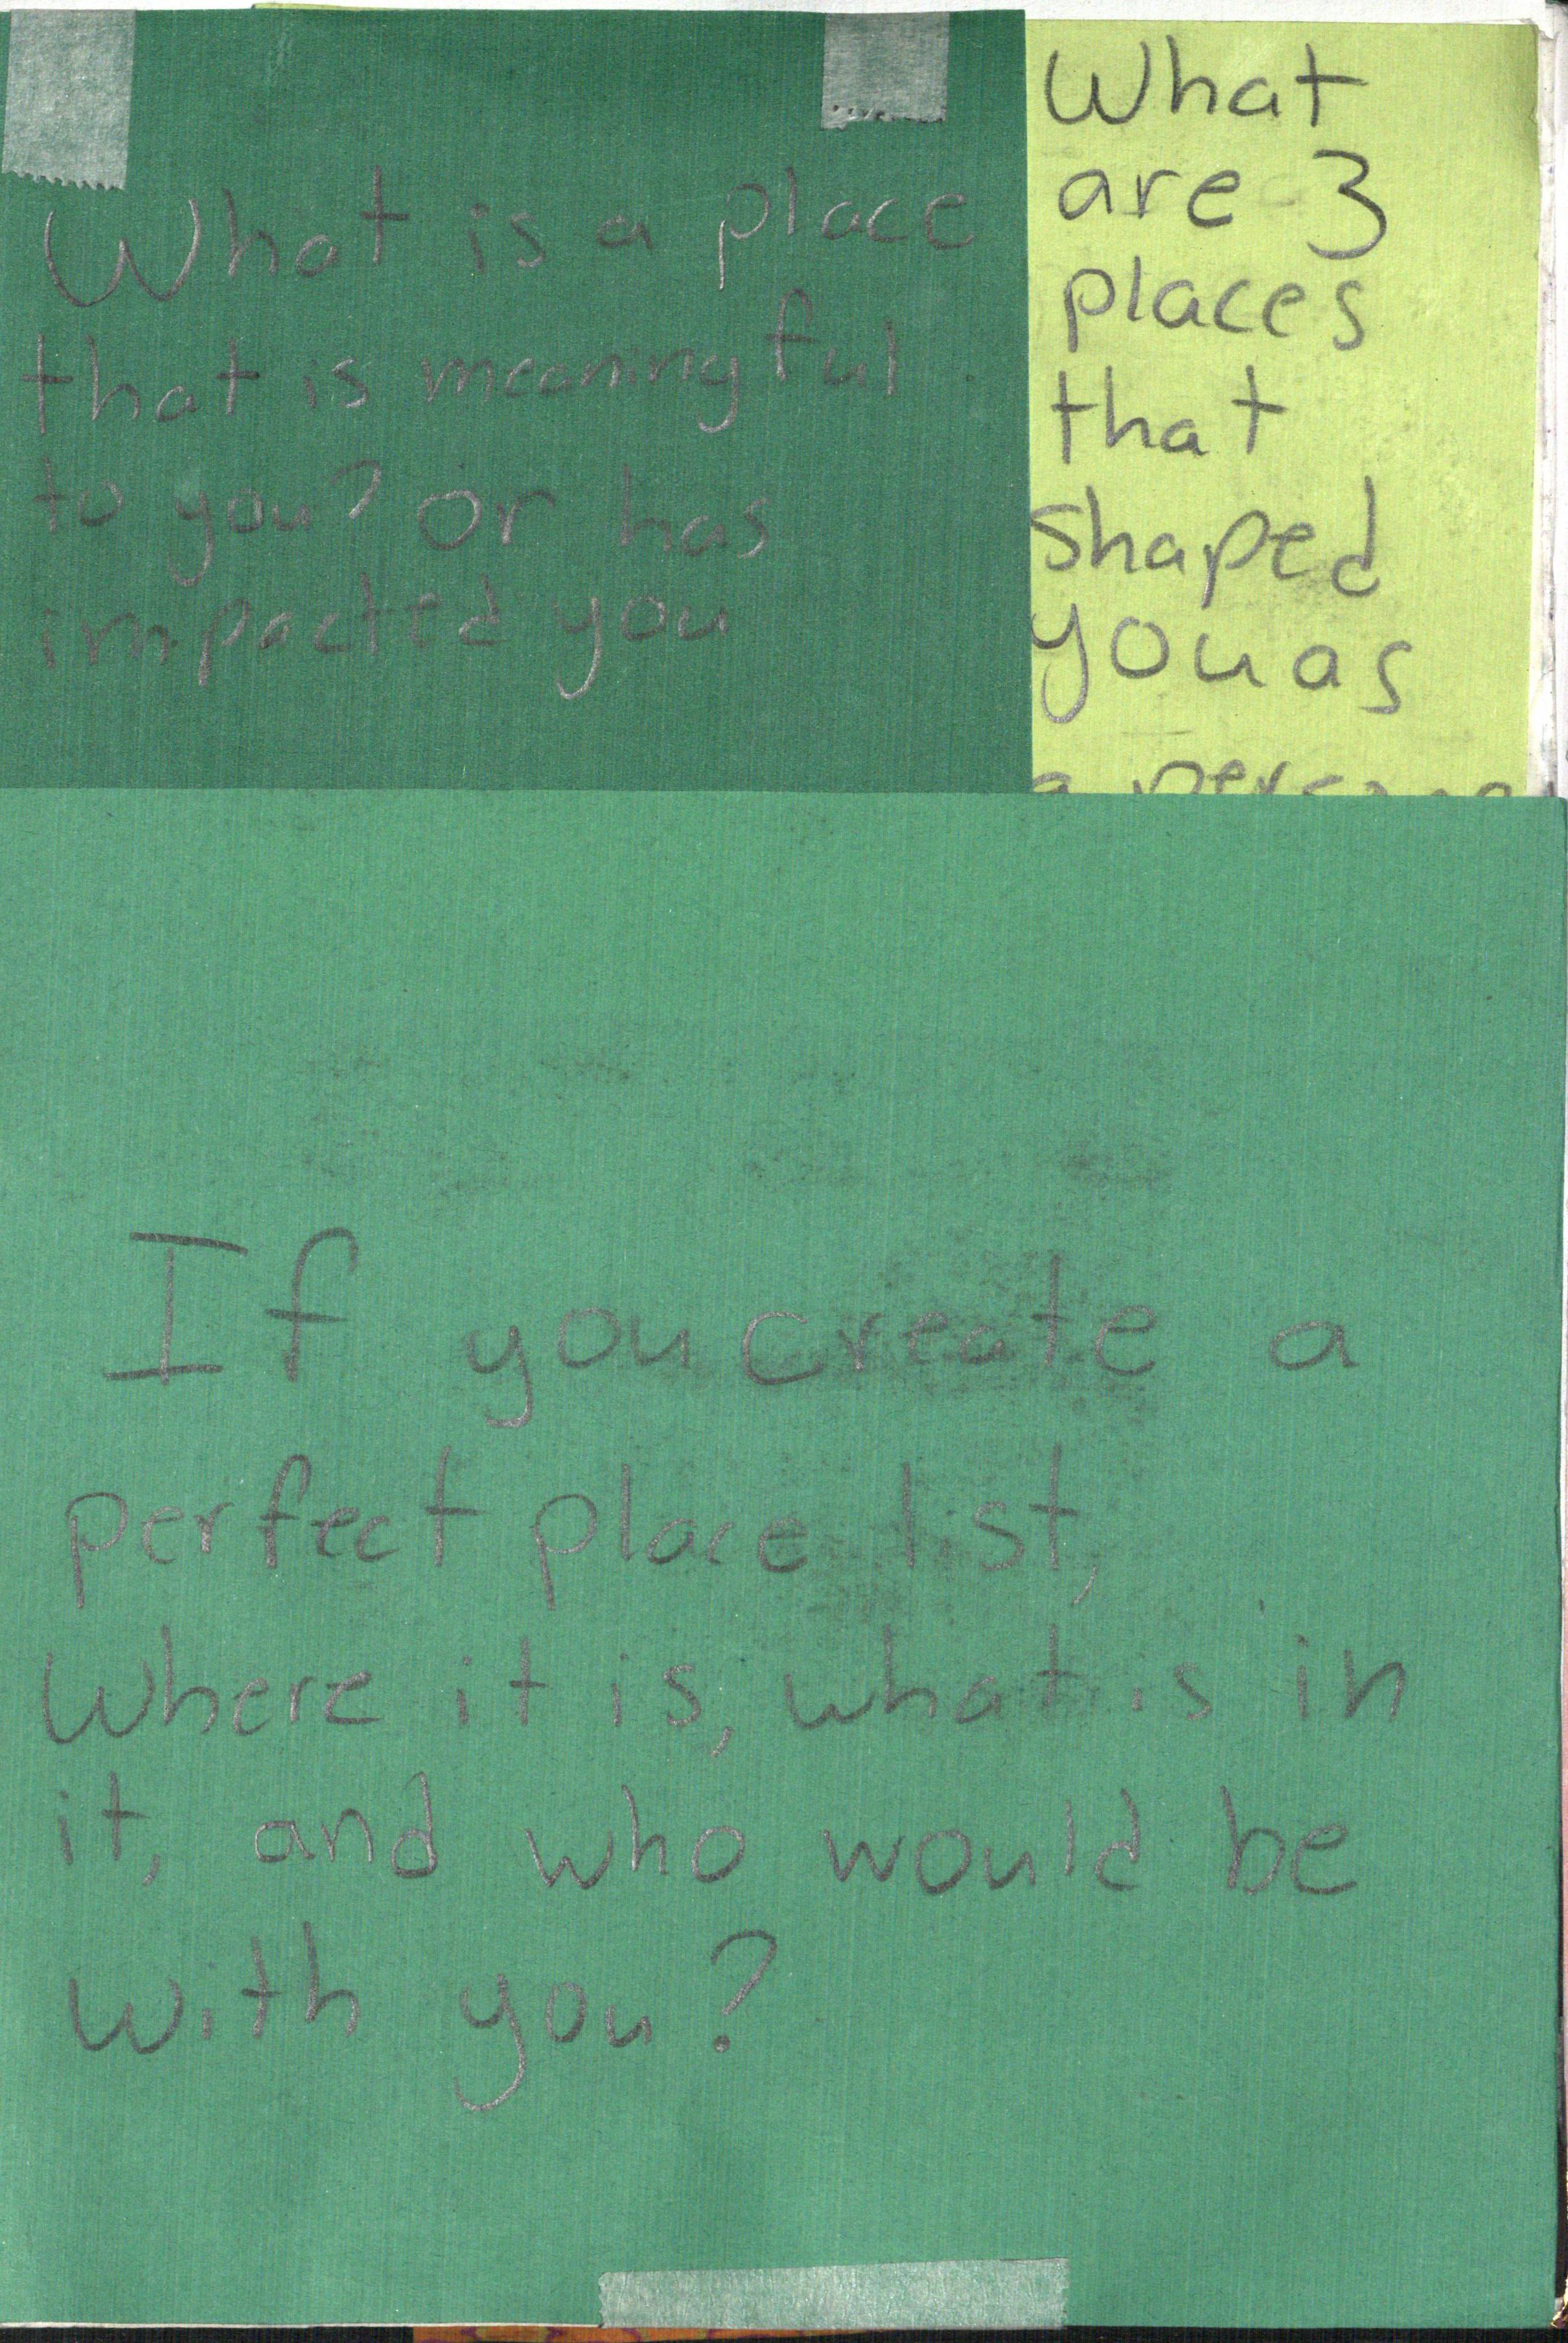 What is a place
that is meaningful
to you? or has
impacted you
What
are 3
places
that
shaped
you as
a person
If you create a
perfect place list,
Where it is, what is in
it, and who would be
with you?